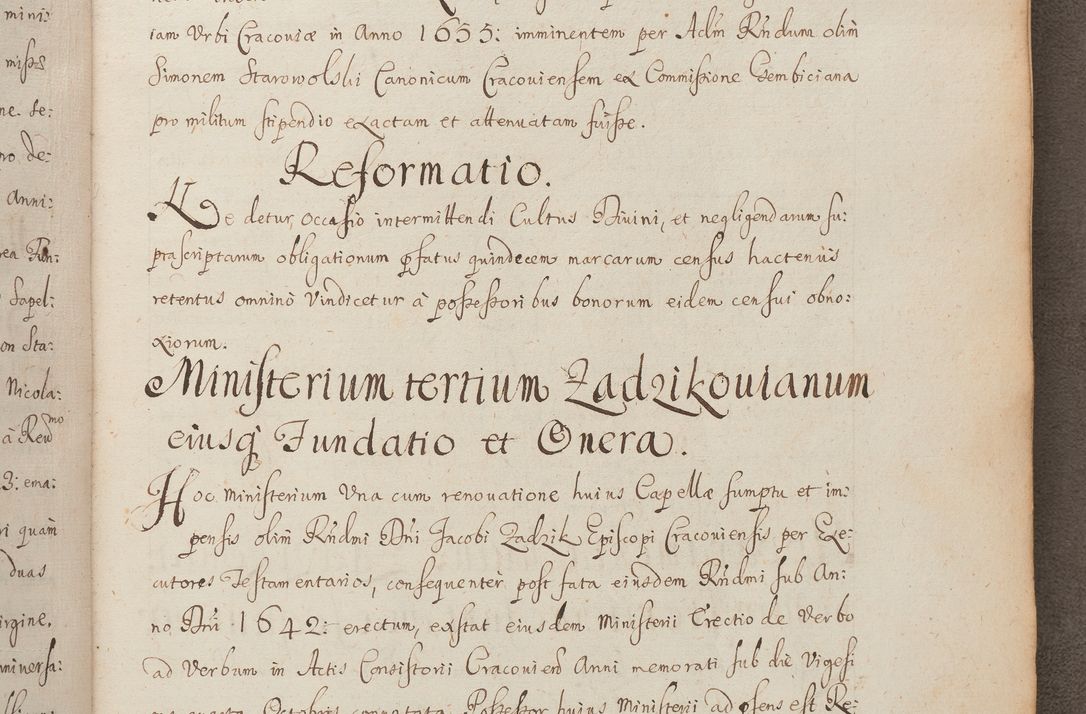 mini:
misis
ne. se:
ro de:
Anni:
rea Fun:
Sapel:
on Sta:
Nicola:
à Reudmo
3: ema:
ri quàm
duas
irgine,
universa:
iam Urbi Cracoviæ in Anno 1655: imminentem per Adm Rndum olim
Simonem Starowolski Canonicum Cracoviensem ex Commissione Gembiciana
pro militum stipendio exactam et attenuatam fuisse.
Reformatio.
Ne detur occasio intermittendi Cultus Divini, et negligendarum su:
prascriptarum obligationum pfatus quindecem marcarum census hactenus
retentus omninò vindicetur à possessoribus bonorum eidem censui obno:
xiorum.
Ministerium tertium Zadzikovianum
eiusq Fundatio et Onera.
Hoc Ministerium Una cum renovatione huius Capellæ sumptu et im:
pensis olim Rndmi Dni Jacobi Zadzik Episcopi Cracoviensis per Exe:
cutores Testamentarios, consequenter post fata eiusdem Rndmi sub An:
no Dni 1642: erectum, exstat eiusdem Ministerii Erectio de Verbo
ad Verbum in Actis Consistorii Cracovien Anni memorati sub die Vigesi
quarta Octobris connotata. Possessor huius Ministerii ad psens est Re: